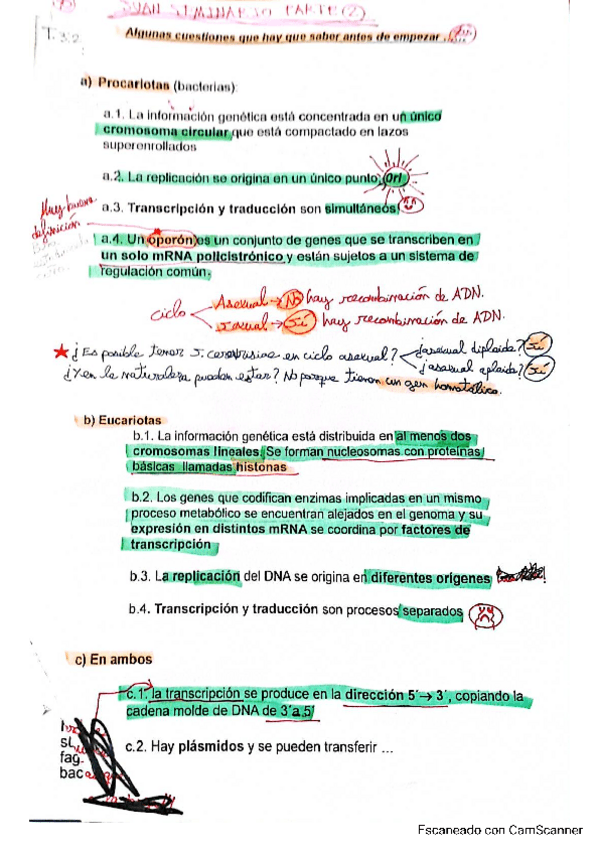 JUAN SEMINARIO PARTE (2)
T. 3.2.
Algunas cuestiones que hay que saber antes de empezar ...
a) Procariotas (bacterias):
a.1. La información genética está concentrada en un único
cromosoma circular que está compactado en lazos
superenrollados
a.2. La replicación se origina en un único punto, Ori
a.3. Transcripción y traducción son simultáneos
Muy buena
definición
a.4. Un operón es un conjunto de genes que se transcriben en
un solo mRNA policistrónico y están sujetos a un sistema de
regulación común.
ciclo
Asexual → No hay recombinación de ADN.
sexual → Sí hay recombinación de ADN.
★ ¿Es posible tener S. cerevisiae en ciclo asexual?
¿asexual diploide? Sí
¿asexual aploide? Sí
¿Y en la naturaleza pueden estar? No porque tienen un gen homotálico.
b) Eucariotas
b.1. La información genética está distribuida en al menos dos
cromosomas lineales. Se forman nucleosomas con proteínas
básicas llamadas histonas
b.2. Los genes que codifican enzimas implicadas en un mismo
proceso metabólico se encuentran alejados en el genoma y su
expresión en distintos mRNA se coordina por factores de
transcripción
b.3. La replicación del DNA se origina en diferentes orígenes
b.4. Transcripción y traducción son procesos separados
c) En ambos
c.1. la transcripción se produce en la dirección 5´→ 3´, copiando la
cadena molde de DNA de 3´a 5´
c.2. Hay plásmidos y se pueden transferir ...
fag.
Escaneado con CamScanner